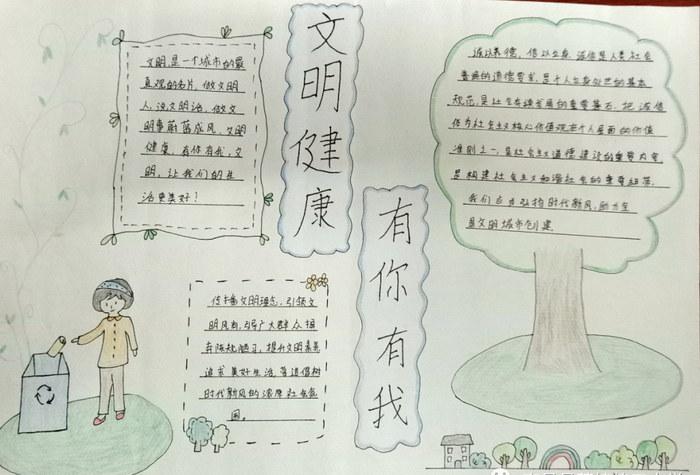 文明健康
有你有我
文明,是一个城市的最
直观的名片,做文明
人,说文明话,做文
明事蔚蓝成风,文明
健康,有你有我,文
明,让我们的生
活更美好!
传播文明理念,引领文
明风尚,引导广大群众摒
弃陈规陋习,提升文明素养
追求美好生活,营造倡树
时代新风的浓厚社会氛
围。
诚以养德,信以立身,诚信是人类社会
普遍的道德要求,是个人立身处世的基本
规范,是社会存续发展的重要基石,把诚信
作为社会主义核心价值观在个人层面的价值
准则之一,是社会主义道德建设的重要内容,
是构建社会主义和谐社会的重要纽带,
我们应当弘扬时代新风,助力全
县文明城市创建